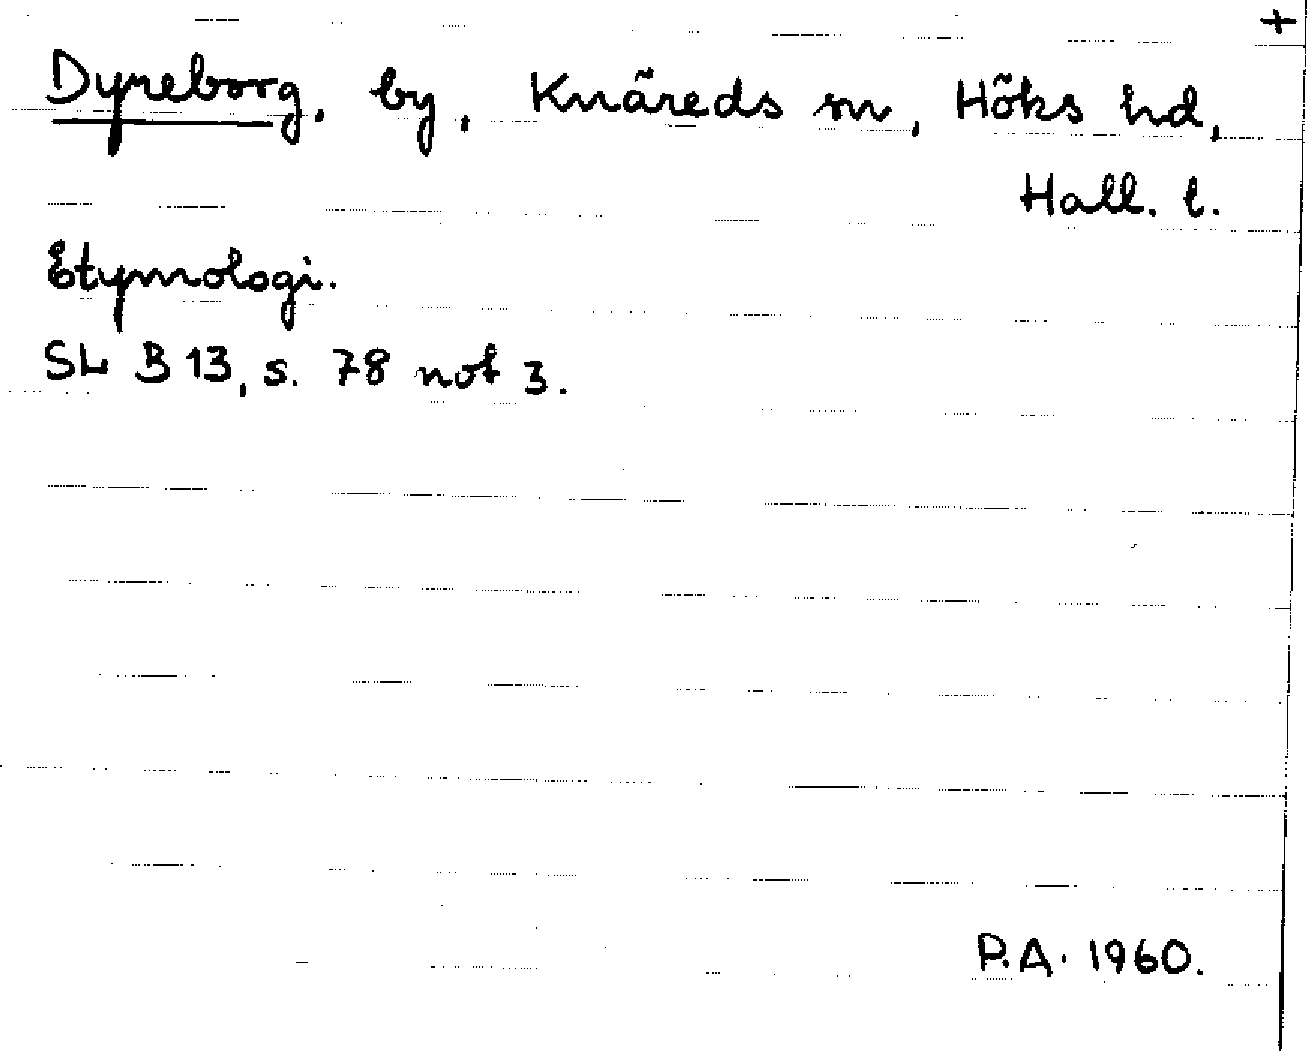 +
Dyreborg, by, Knäreds sn, Höks hd,
Hall. l.
Etymologi.
SL B 13, s. 78 not 3.
P.A. 1960.